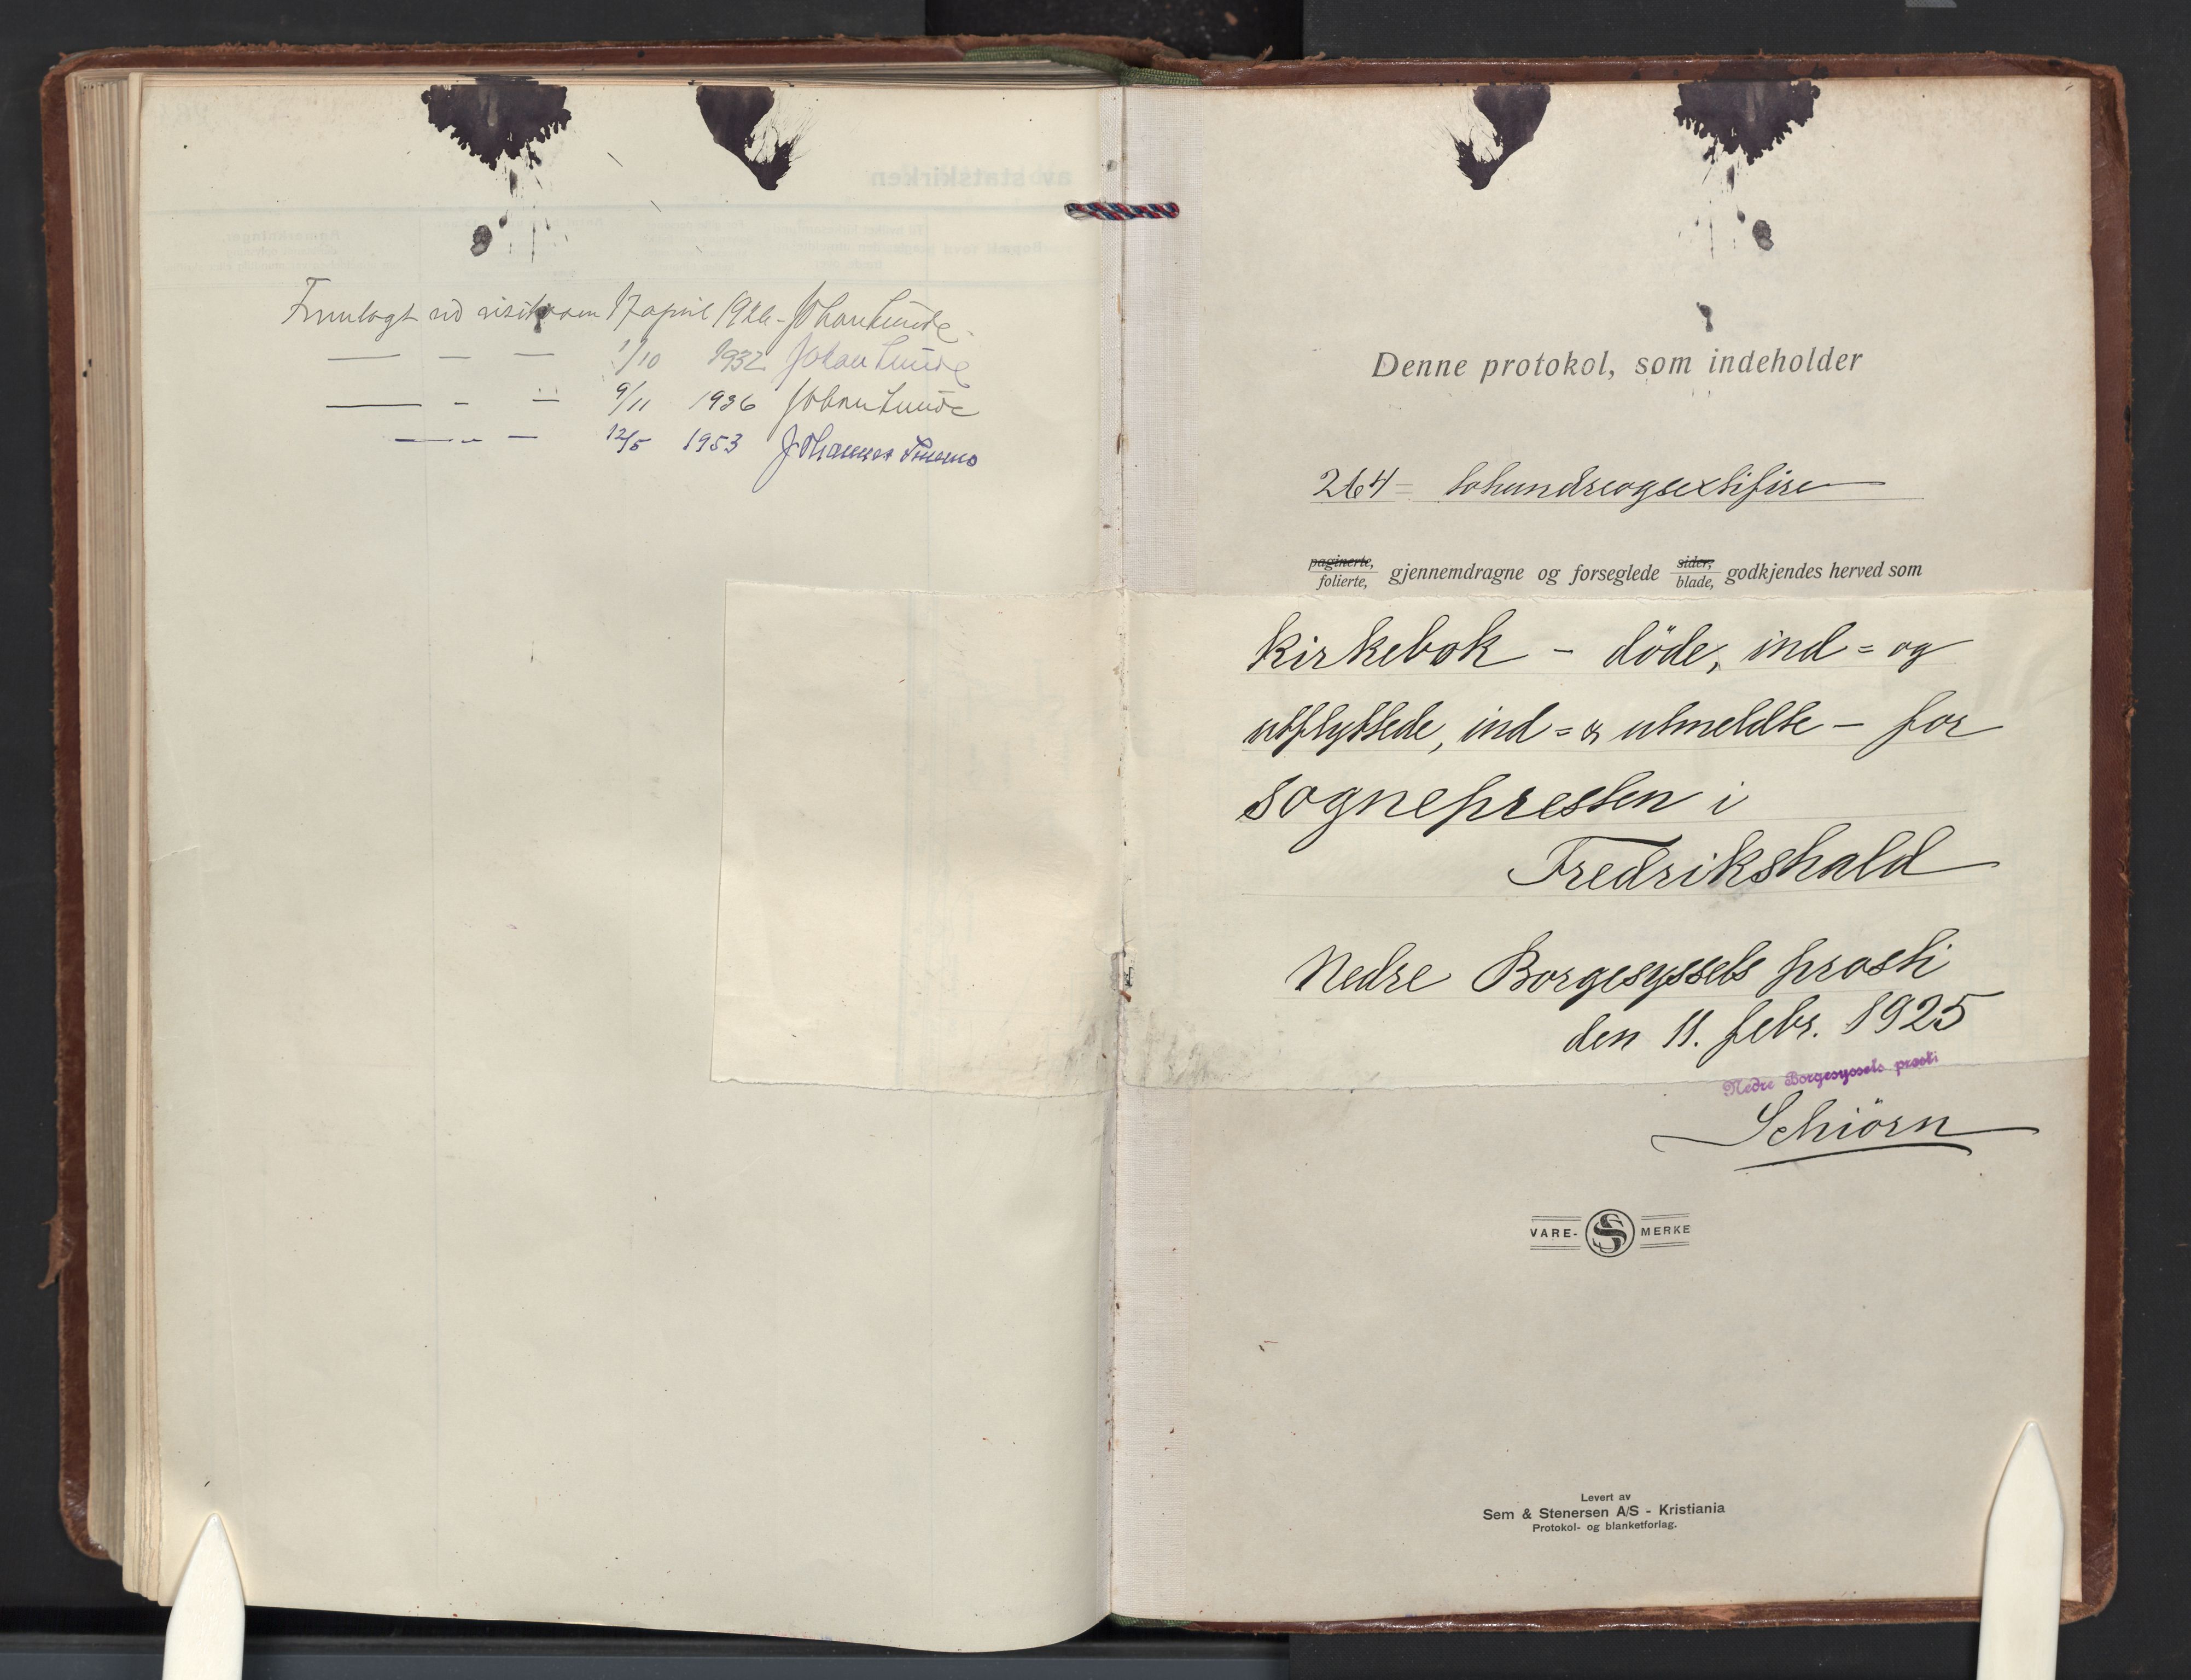 Fremlagt ved visitasen 17 april 1926 - Johan Lunde
— - — 1/10 1932 Johan Lunde
— - — 9/11 1936 Johan Lunde
— - — 12/5 1953 Johannes Smemo
Denne protokol, som indeholder
264 = tohundreogsextifire
paginerte, folierte, gjennemdragne og forseglede sider, blade, godkjendes herved som
kirkebok – döde, ind = og
utflyttede, ind = & utmeldte – for
sognepresten i
Fredrikshald
Nedre Borgesyssels prosti
den 11. febr. 1925
Nedre Borgesyssels prosti
Schiörn
VARE- S MERKE
Levert av
Sem & Stenersen A/S - Kristiania
Protokol- og blanketforlag.